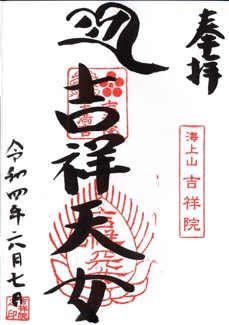 奉拝
海上山 吉祥院
吉祥天女
令和四年六月七日